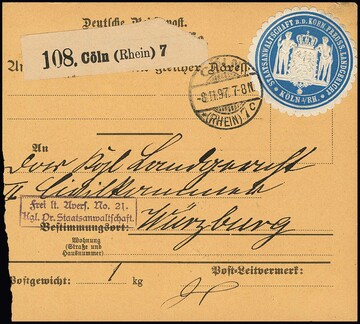 Deutsche Reichspost.
108. Cöln (Rhein) 7
gleicher Adresse
STAATSANWALTSCHAFT B. D. KÖN. PREUSS. LANDGERICHT
KÖLN a/RH.
CÖLN
-8.11.97. 7-8.N.
*(RHEIN)* 7c
An
Das Kgl. Landgericht
II Civilkammer
Frei lt. Avers. No. 21.
Kgl. Pr. Staatsanwaltschaft.
in
Würzburg
Bestimmungsort:
Wohnung
(Straße und
Hausnummer)
Postgewicht: 1 kg
Post-Leitvermerk: